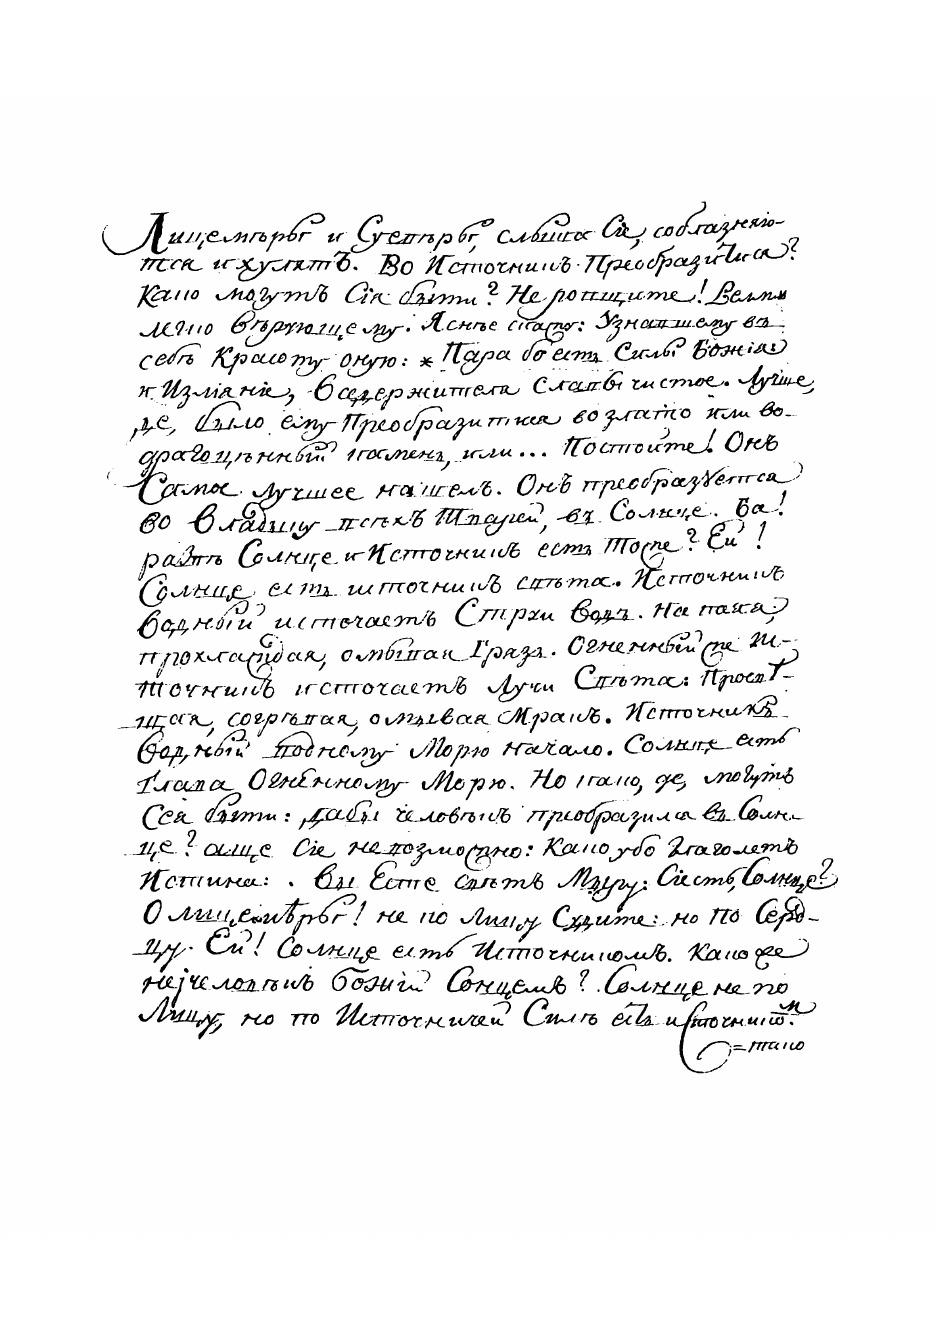 Лицемѣры и Суевѣры, слыша Сіе, соблазняю-
тся и хулятъ. Во Источникъ Преобразитися?
Како могутъ Сія быти? Не ропщите! Вельми
легко вѣрующему. Яснѣе скажу: Узнавшему въ
себѣ Красоту оную: * Пара бо есть Силы Божія:
и Изліяніе, Вседержителя Славы чистое. Лучше,
де, было ему Преобразитися во злато или во
драгоцѣнный камень, или... Постойте! Онъ
Самое Лучшее нашелъ. Онъ преобразуется
во Владыку всѣхъ Тварей, въ Солнце. Ба!
развѣ Солнце и Источникъ есть Тожде? Ей!
Солнце есть источникъ свѣта. Источникъ
Водный источаетъ Струи Водъ. Напаяя,
прохлаждая, омывая Грязь. Огненный же Ис-
точникъ источаетъ Лучи Свѣта: Просвѣ-
щая, согрѣвая, омывая Мракъ. Источникъ
Водный Водному Морю начало. Солнце есть
Глава Огненному Морю. Но како, де, могутъ
Сія быти: дабы человѣкъ преобразился въ Солн-
це? аще Сіе невозможно: Како убо глаголетъ
Истина: Вы Есте свѣтъ Міру: Сіесть, Солнце?
О лицемѣры! не по Лицу Судите: но по Серд-
цу. Ей! Солнце есть Источникомъ. Како же
не и человѣкъ Божій Солнцемъ? Солнце не по
Лицу, но по Источничей Силѣ есть источником.
=тако